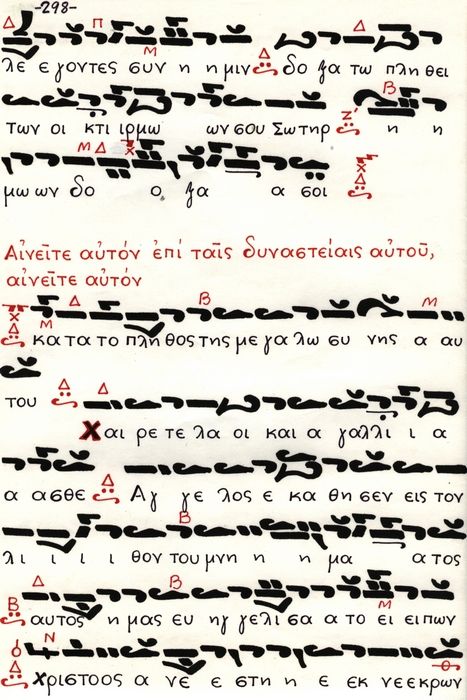 -298-
λε ε γοντες συν η η μιν δο ξα τω πλη θει
των οι κτι ιρμω ων σου Σωτηρ η η
μω ων δο ο ξα α σοι
Αἰνεῖτε αὐτόν ἐπί ταῖς δυναστείαις αὐτοῦ,
αἰνεῖτε αὐτόν
κα τα το πλη θος της με γα λω συ νης α αυ
του
Χαι ρε τε λα οι και α γαλλι ι α
α ασθε Αγ γε λος ε κα θη σεν εις τον
λι ι ι ι θον του μνη η η μα α τος
αυτος η μας ευ ηγ γελι σα α το ει ει πων
Χριστοος α νε ε στη η ε εκ νεεκρων